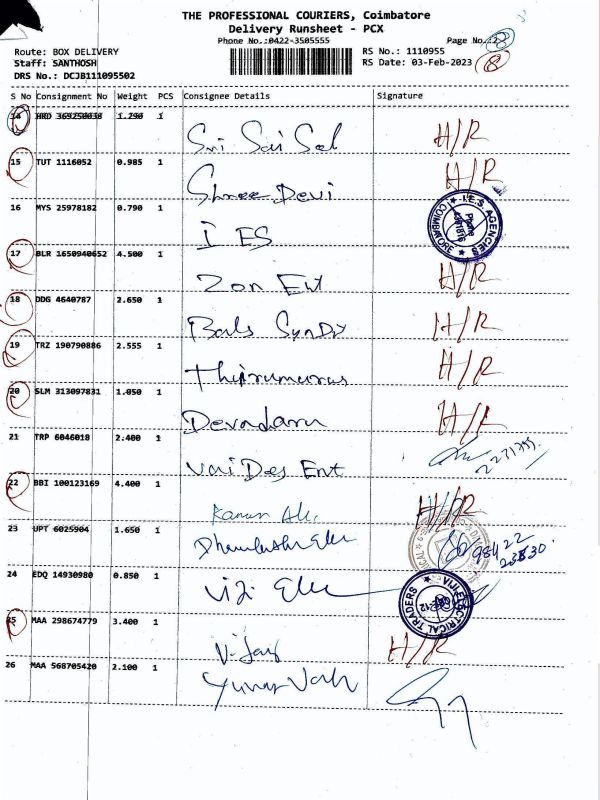 THE PROFESSIONAL COURIERS, Coimbatore
Delivery Runsheet - PCX
Phone No.:0422-3505555
Page No.:2
8
Route: BOX DELIVERY
RS No.: 1110955
Staff: SANTHOSH
RS Date: 03-Feb-2023
8
DRS No.: DCJB111095502
S No Consignment No Weight PCS Consignee Details Signature
14 HRD 369250038 1.290 1 Sri Sai Sal H/R
15 TUT 1116052 0.985 1 Shree Devi H/R
16 MYS 25978182 0.790 1 I ES I.E.S. AGENCIES COIMBATORE Phone
17 BLR 1650940652 4.500 1 Zon Ent H/R
18 DDG 4640787 2.650 1 Bals H/R
19 TRZ 190790886 2.555 1 H/R
20 SLM 313097831 1.050 1 Devadaru H/R
21 TRP 6046018 2.400 1 Vai Des Ent
22 BBI 100123169 4.400 1 H/R
23 UPT 6025904 1.650 1 98422
24 EDQ 14930980 0.850 1 Viji Ele VIJI ELECTRICAL TRADERS
25 MAA 298674779 3.400 1 Vijay H/R
26 MAA 568705420 2.100 1